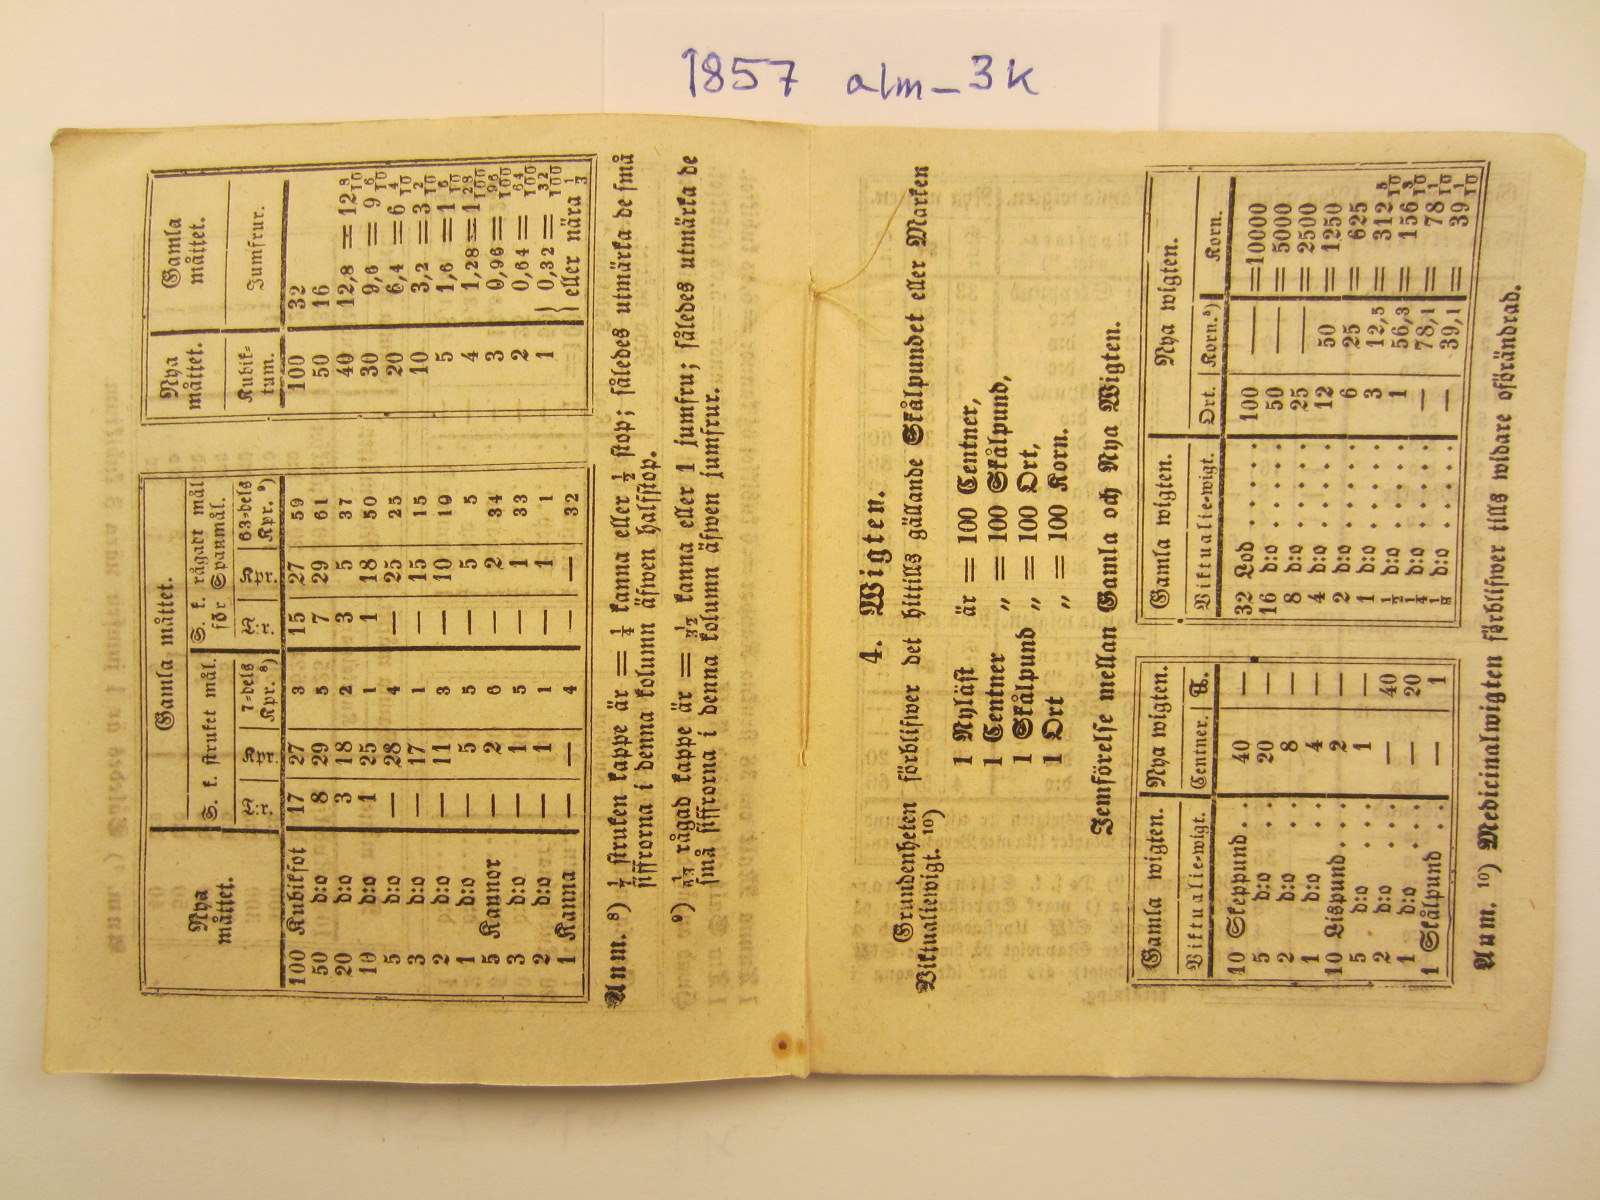 1857 alm_3k
Gamla måttet.
Nya måttet.
S. k. struket mål.
S. k. rågadt mål för Spanmål.
Tr. Kpr. 7-dels Kpr. ⁸) Tr. Kpr. 63-dels Kpr. ⁹)
100 Kubikfot 17 27 3 15 27 59
50 d:o 8 29 5 7 29 61
20 d:o 3 18 2 3 5 37
10 d:o 1 25 1 1 18 50
5 d:o — 28 4 — 25 25
3 d:o — 17 1 — 15 15
2 d:o — 11 3 — 10 10
1 d:o — 5 5 — 5 5
5 Kannor — 2 6 — 2 34
3 d:o — 1 5 — 1 33
2 d:o — 1 1 — 1 1
1 Kanna — — 4 — — 32
Nya måttet. Gamla måttet.
Kubiktum. Jumfrur.
100 32
50 16
40 12,8 = 12 8/10
30 9,6 = 9 6/10
20 6,4 = 6 4/10
10 3,2 = 3 2/10
5 1,6 = 1 6/10
4 1,28 = 1 28/100
3 0,96 = 96/100
2 0,64 = 64/100
1 } 0,32 = 32/100
eller nära 1/3
Anm. ⁸) 1/7 struken kappe är = 1/4 kanna eller 1/2 stop; således utmärka de små
siffrorna i denna kolumn äfwen halfstop.
⁹) 1/63 rågad kappe är = 1/32 kanna eller 1 jumfru; således utmärka de
små siffrorna i denna kolumn äfwen jumfrur.
4. Wigten.
Grundenheten förblifwer det hittills gällande Skålpundet eller Marken
Viktualiewigt. ¹⁰)
1 Nyläst är = 100 Centner,
1 Centner „ = 100 Skålpund,
1 Skålpund „ = 100 Ort,
1 Ort „ = 100 Korn.
Jemförelse mellan Gamla och Nya Wigten.
Gamla wigten. Nya wigten.
Viktualie-wigt. Centner. ℔.
10 Skeppund . . 40 —
5 d:o . . 20 —
2 d:o . . 8 —
1 d:o . . 4 —
10 Lispund . . . 2 —
5 d:o . . 1 —
2 d:o . . — 40
1 d:o . . — 20
1 Skålpund . . — 1
Gamla wigten. Nya wigten.
Viktualie-wigt. Ort. Korn.⁹) Korn.
32 Lod . . . . . 100 — = 10000
16 d:o . . . . . 50 — = 5000
8 d:o . . . . . 25 — = 2500
4 d:o . . . . . 12 50 = 1250
2 d:o . . . . . 6 25 = 625
1 d:o . . . . . 3 12,5 = 312 5/10
1/2 d:o . . . . . 1 56,3 = 156 3/10
1/4 d:o . . . . . — 78,1 = 78 1/10
1/8 d:o . . . . . — 39,1 = 39 1/10
Anm. ¹⁰) Medicinalwigten förblifwer tills widare oförändrad.